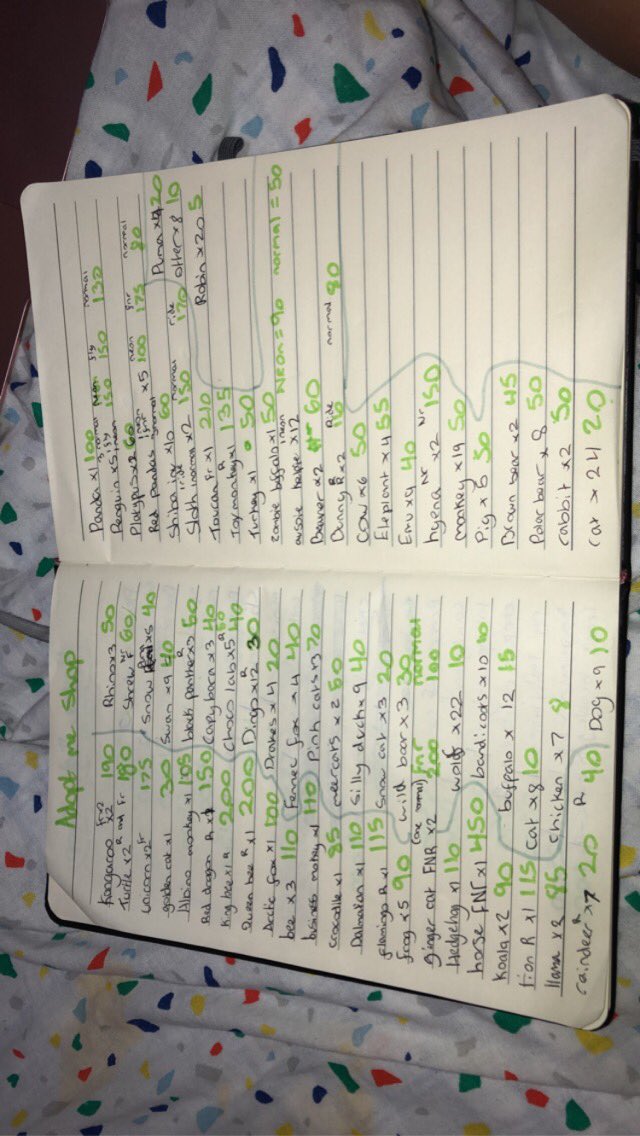 Adopt me Shop
Kangaroo Fr x2 x2 190 Rhino x3 50
Turtle x2 R and Fr 180 Shrew Nr F 60
Unicorn x2 Fr 175 Snow Puma x5 40
golden rat x1 30 Swan x9 40
Albino monkey x1 105 black Panther x3 R 50
Red dragon R x1 150 Capybara x3 40
King bee x1 R 200 choco lab x5 R 60 40
Queen bee R x1 200 Dingo x12 R 30
Arctic fox x1 100 Drakes x4 20
bee x3 110 Fennec fox x4 40
business monkey x1 110 Pink cats x3 70
crocodile x1 85 meercats x2 50
Dalmatian x1 110 Silly duck x9 40
flamingo R x1 115 Snow cat x3 20
frog x5 90 wild boar x3 30
ginger cat FNR x2 (one normal) fnr 200 normal 100
Hedgehog x1 116 wolf x22 10
horse FNR x1 450 bandicoots x10 10
Koala x2 90 buffalo x 12 15
Lion R x1 115 Cat x8 10
llama x2 85 chicken x7 8
raindeer R x7 20 R 40 Dog x9 10
Panda x1 100
Penguin x5, 3 normal 1 fly 1 neon neon 150 fly 150 normal 130
Platypus x2 60
Red pandas x5 neon 100 fnr 175 normal 80
Shiba ride x10 60
Puma x4 20
Sloth normal x2 normal 150 ride 170
otter x8 10
Toucan Fr x1 210
Robin x20 5
Toy monkey x1 R 135
Turkey x1 50
zombie buffalo x1 50
aussie helpie x12 1 neon Neon = 90 normal = 50
Beaver x2 60
Bunny R x2 Ride 110 normal 90
Cow x6 50
Elephant x4 55
Emu x4 40
hyena Nr x2 Nr 150
monkey x19 50
Pig x 5 50
Brown bear x2 45
Polar bear x 8 50
rabbit x2 50
rat x 24 20